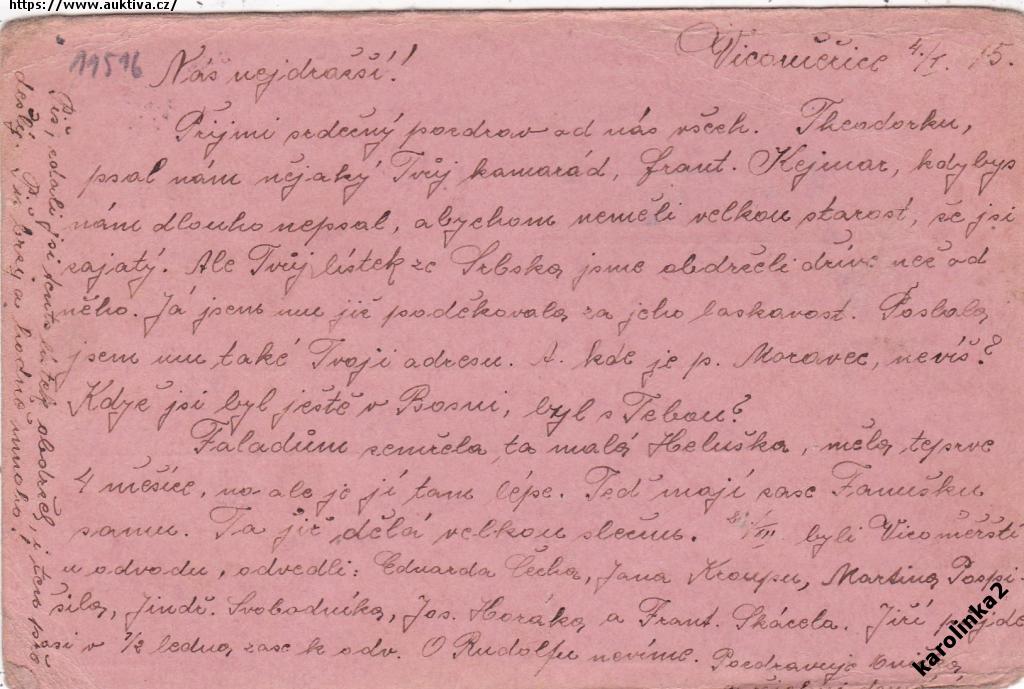 https://www.auktiva.cz/
11516
Vicoměřice 4./I. 15.
Náš nejdražší!
Přijmi srdečný pozdrav od nás všech. Theodorku,
psal nám nějaký Tvůj kamarád, Frant. Kejmar, kdybys
nám dlouho nepsal, abychom neměli velkou starost, že jsi
zajatý. Ale Tvůj lístek ze Srbska jsme obdrželi dříve než od
něho. Já jsem mu již poděkovala za jeho laskavost. Poslala
jsem mu také Tvoji adresu. A. kde je p. Moravec, nevíš?
Když jsi byl ještě v Bosni, byl s Tebou?
Faladům zemřela, ta malá Heluška, měla teprve
4 měsíce, no ale je jí tam lépe. Teď mají zase Fanušku
samu. Ta již dělá velkou slečnu. /XII. byli Vicoměřští
u odvodu, odvedli: Eduarda Čecha, Jana Kroupu, Martina Pospí-
šila, Jindř. Svobodníka, Jos. Horáka a Frant. Skácela. Jiří půjde
asi v 1/2 ledna zase k odv. O Rudolfu nevíme. Pozdravuje
Piš, zdali jsi tento lístek obdržel, i ten
dešlý. Piš brzy a hodně mnoho!
karolinka2